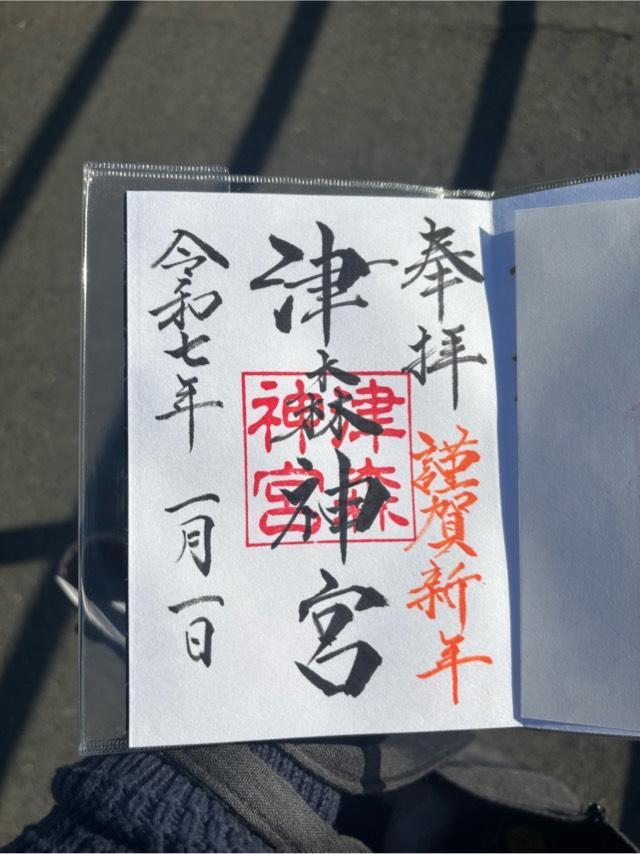 奉拝
謹賀新年
津森神宮
津森神宮
令和七年 一月一日